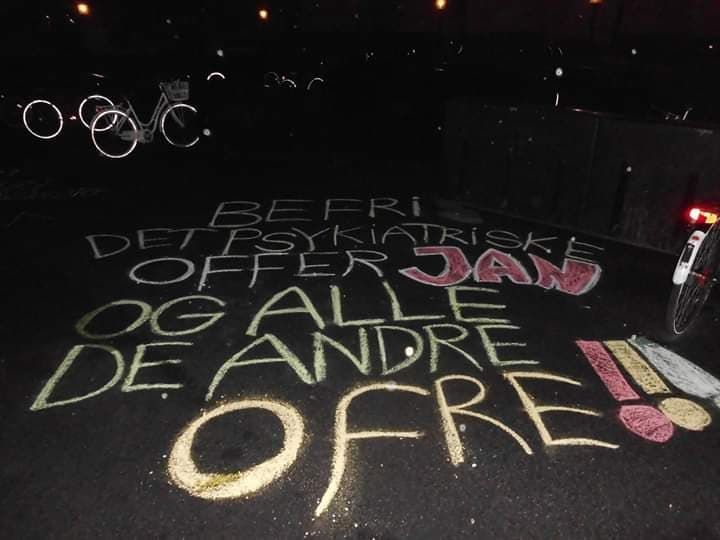 BEFRI
DET PSYKIATRISKE
OFFER JAN
OG ALLE
DE ANDRE
OFRE!!!